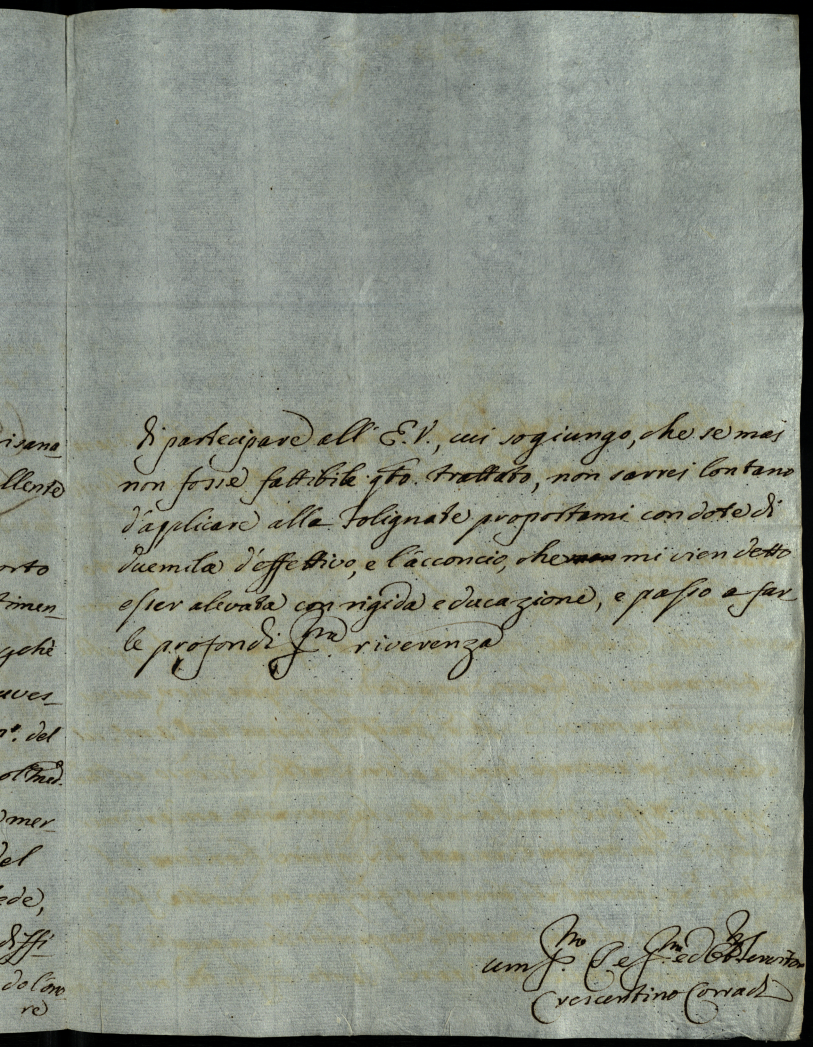 risana
llente
orto
timen
gchè
aves
nº. del
mer
del
ede,
diffi
dolo
re
di partecipare all' E.V., cui sogiungo, che se mai
non fosse fattibile qto. trattato, non sarrei lontano
d'applicare alla Folignate proportami con dote di
duemila d'effettivo, e l'acconcio, che mi vien detto
esser alevata con rigida educazione, e passo a far
le profondi riverenza
Crescentino Corradi